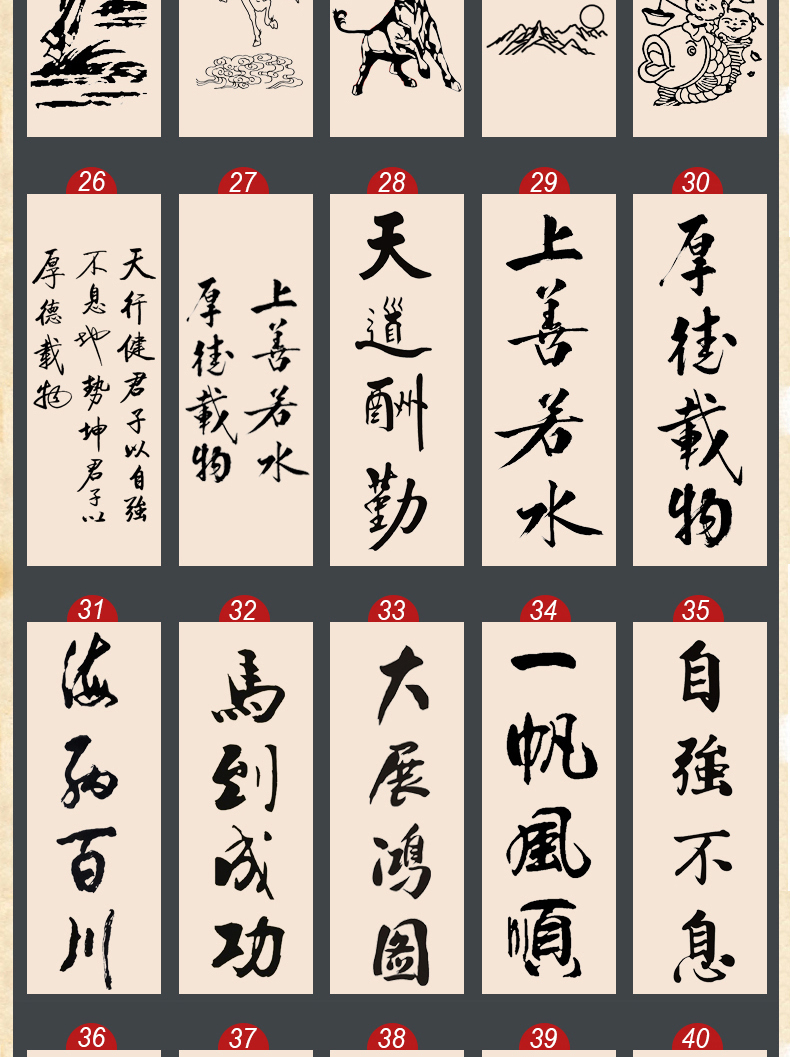 26
27
28
29
30
天行健君子以自強
不息地勢坤君子以
厚德載物
上善若水
厚德載物
天道酬勤
上善若水
厚德載物
31
32
33
34
35
海納百川
馬到成功
大展鴻圖
一帆風順
自強不息
36
37
38
39
40